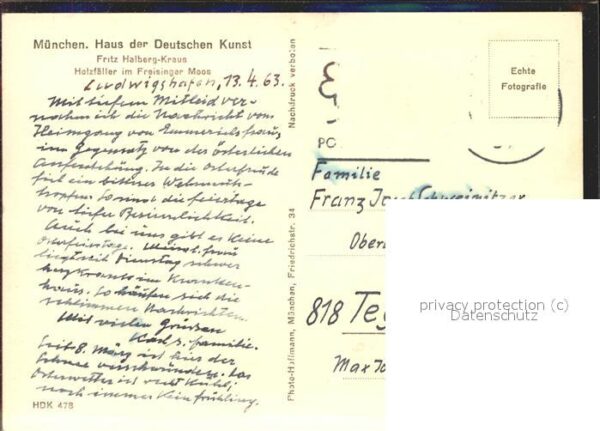 München. Haus der Deutschen Kunst
Fritz Halberg-Kraus
Holzfäller im Freisinger Moos
Ludwigshafen, 13.4.63.
Mit tiefem Mitleid ver-
nahmen wir die Nachricht vom
Heimgang von Emmerichsfrau,
im Gegensatz von der österlichen
Auferstehung. In die Osterfreude
fiel ein bitterer Wehmuts-
tropfen. So sind die Feiertage
von tiefer
Auch bei uns gibt es keine
Osterfeiertage. frau
liegt seit Dienstag schwer
herzkrank im Kranken-
haus. So häufen sich die
schlimmen Nachrichten.
Mit vielen Grüssen
Karl u. familie.
Seit 8. März ist hier der
Schnee verschwunden. Das
Osterwetter ist recht kühl;
noch immer kein frühling.
HDK 478
Nachdruck verboten
Photo-Hoffmann, München, Friedrichstr. 34
Echte
Fotografie
PC
Familie
Franz Josef Schweinitzer
Obern
818 Teg
Max Jo
privacy protection (c)
Datenschutz